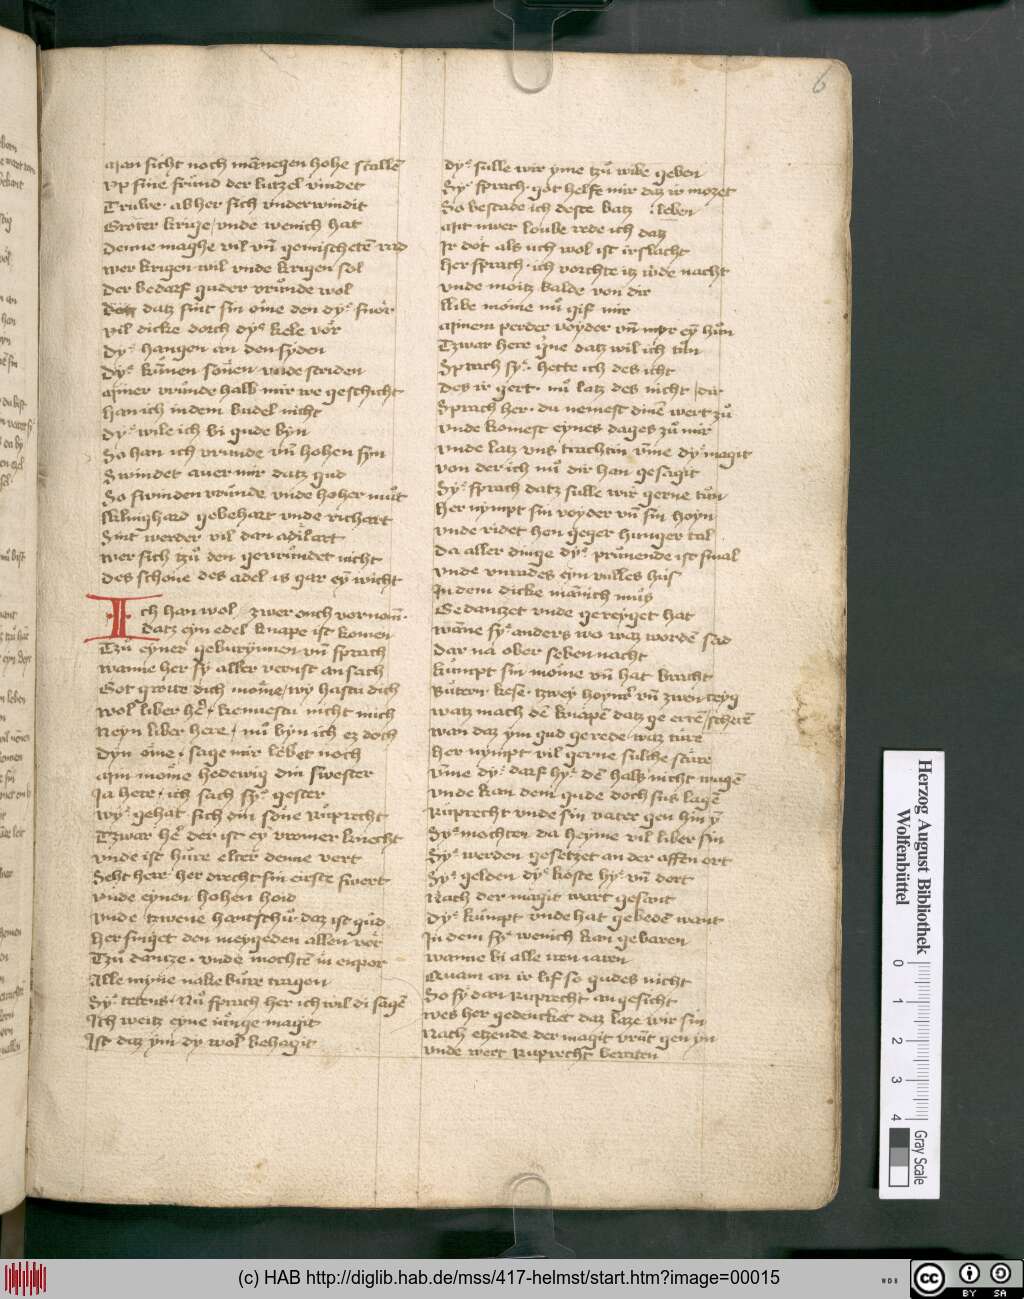 Man sicht noch mānegen hohe stallē
Vp sine frūnd der lutzel vindet
Truwe · ab her sich vnderwindit
Groter krige / vnde wenich hat
Denne maghe vil vn̄ gemischetē rad
Wer krigen wil vnde krigen sol
Der bedarf guder vrůnde wol
datz sint sin ōme den dy snōr
Vil dicke dorch dy kele vōr
Dy hangen an den syden
Dy kůmen sōuen vnde striden
Miner vrůnde halb mir we geschicht
Han ich in dem budel nicht
Dy wile ich bi gude byn
So han ich vrunde vn̄ hohen syn
Swindet auer mir datz gud
So swinden vrůnde vnde hoher můt
Klinghard gebehart vnde richart
Sint werder vil dan adilart
Wer sich tzů den gevrůndet nicht
Des schone des adel is gar eyn wicht
Ich han wol / zwer ouch vornom̄ ·
Datz eym edel knape ist komen
Tzů eyner geburynnen vn̄ sprach
Wanne her sy aller vernst an sach
Got grotte dich mōme / wy hastu dich
Wol liber hē / kennestu nicht mich
Neyn liber here / nů byn ich ez doch
Dyn ōme · sage mir lebet noch
Min mōme hedewig din swester
Ja here · ich sach sy gester
Wy gehat sich din sōne Růprecht
Tzwar hē der ist ey vromer knecht
Vnde ist hůre elter denne vert
Seht herr her drecht sin erste swert
Vnde eynen hohen hoid
Vnde twene hantschů · daz ist gůd
Her singet den meygeden allen vōr
Tzů dantze · vnde mochtē in enpor
Alle myne nalle kůre tragen
Sy tetens · Nů sprach her ich wil di sagē
Ich weitz eyne iūnge magit
Ist daz ym dy wol behagit
Dy sulle wir yme tzů wibe geben
Sy sprach · got helfe mir daz ir mozet
So bestade ich deste batz : leben
Mit uwer loube rede ich daz
Ir dot als uch wol ist irslacht
Her sprach · ich vorchte itz wde nacht
Vnde moitz balde von dir
Libe mōme nů gif mir
Minem perder voyder vn̄ myr ey hůn
Tzwar here gine datz wil ich tůn
Sprach sy · hette ich des icht
Des ir gert · nů latz des nicht / dir
Sprach her · du nemest dinē wert zů
Vnde komest eynes dages zů mir
Vnde latz vns trachtin vm̄e dy magit
Von der ich nů dir han gesagit
Sy sprach datz sulle wir gerne tůn
Her nympt sin voyder vn̄ sin hoyn
Vnde ridet hen geger hunger tal
Da aller dinge dy průuende ist smal
Vnde vnrades eyn vulles hus
In dem dicke mānich můs
Gedantzet vnde gereyget hat
Wāne sy anders wo waz wordē sad
Dar na ober seben nacht
Kůmpt sin mōme vn̄ hat bracht
Butern · kese · tzwey hoynr vn̄ zwen teyg
Watz mach dē knapē datz ge erre / scherē
Wan daz ym gud gerede waz tůre
Her nympt vil gerne sulche stůre
Vm̄e dy darf hy dē halb nicht wagē
Vnde kan dem gude doch sus lagē
Ruprecht vnde sin vater gen hin y
Sy mochten da heyme vil liber sin
Sy werden gesetzet an der affen ort
Sy gelden dy koste hy vn̄ dort
Nach der magit wart gesant
Dy kůmpt vnde hat gebedē want
In dem sy wenich kan gebaren
Wanne bi alle iren iaren
Quam an ir lif so gudes nicht
So sy dan Ruprecht an gesicht
Wes her gedencket daz laze wir sin
Nach etzende der magit vrůt gen yn
Vnde wert Ruprecht beraten
6
Herzog August Bibliothek
Wolfenbüttel
0 1 2 3 4
Gray Scale
(c) HAB http://diglib.hab.de/mss/417-helmst/start.htm?image=00015
WDB
cc BY SA